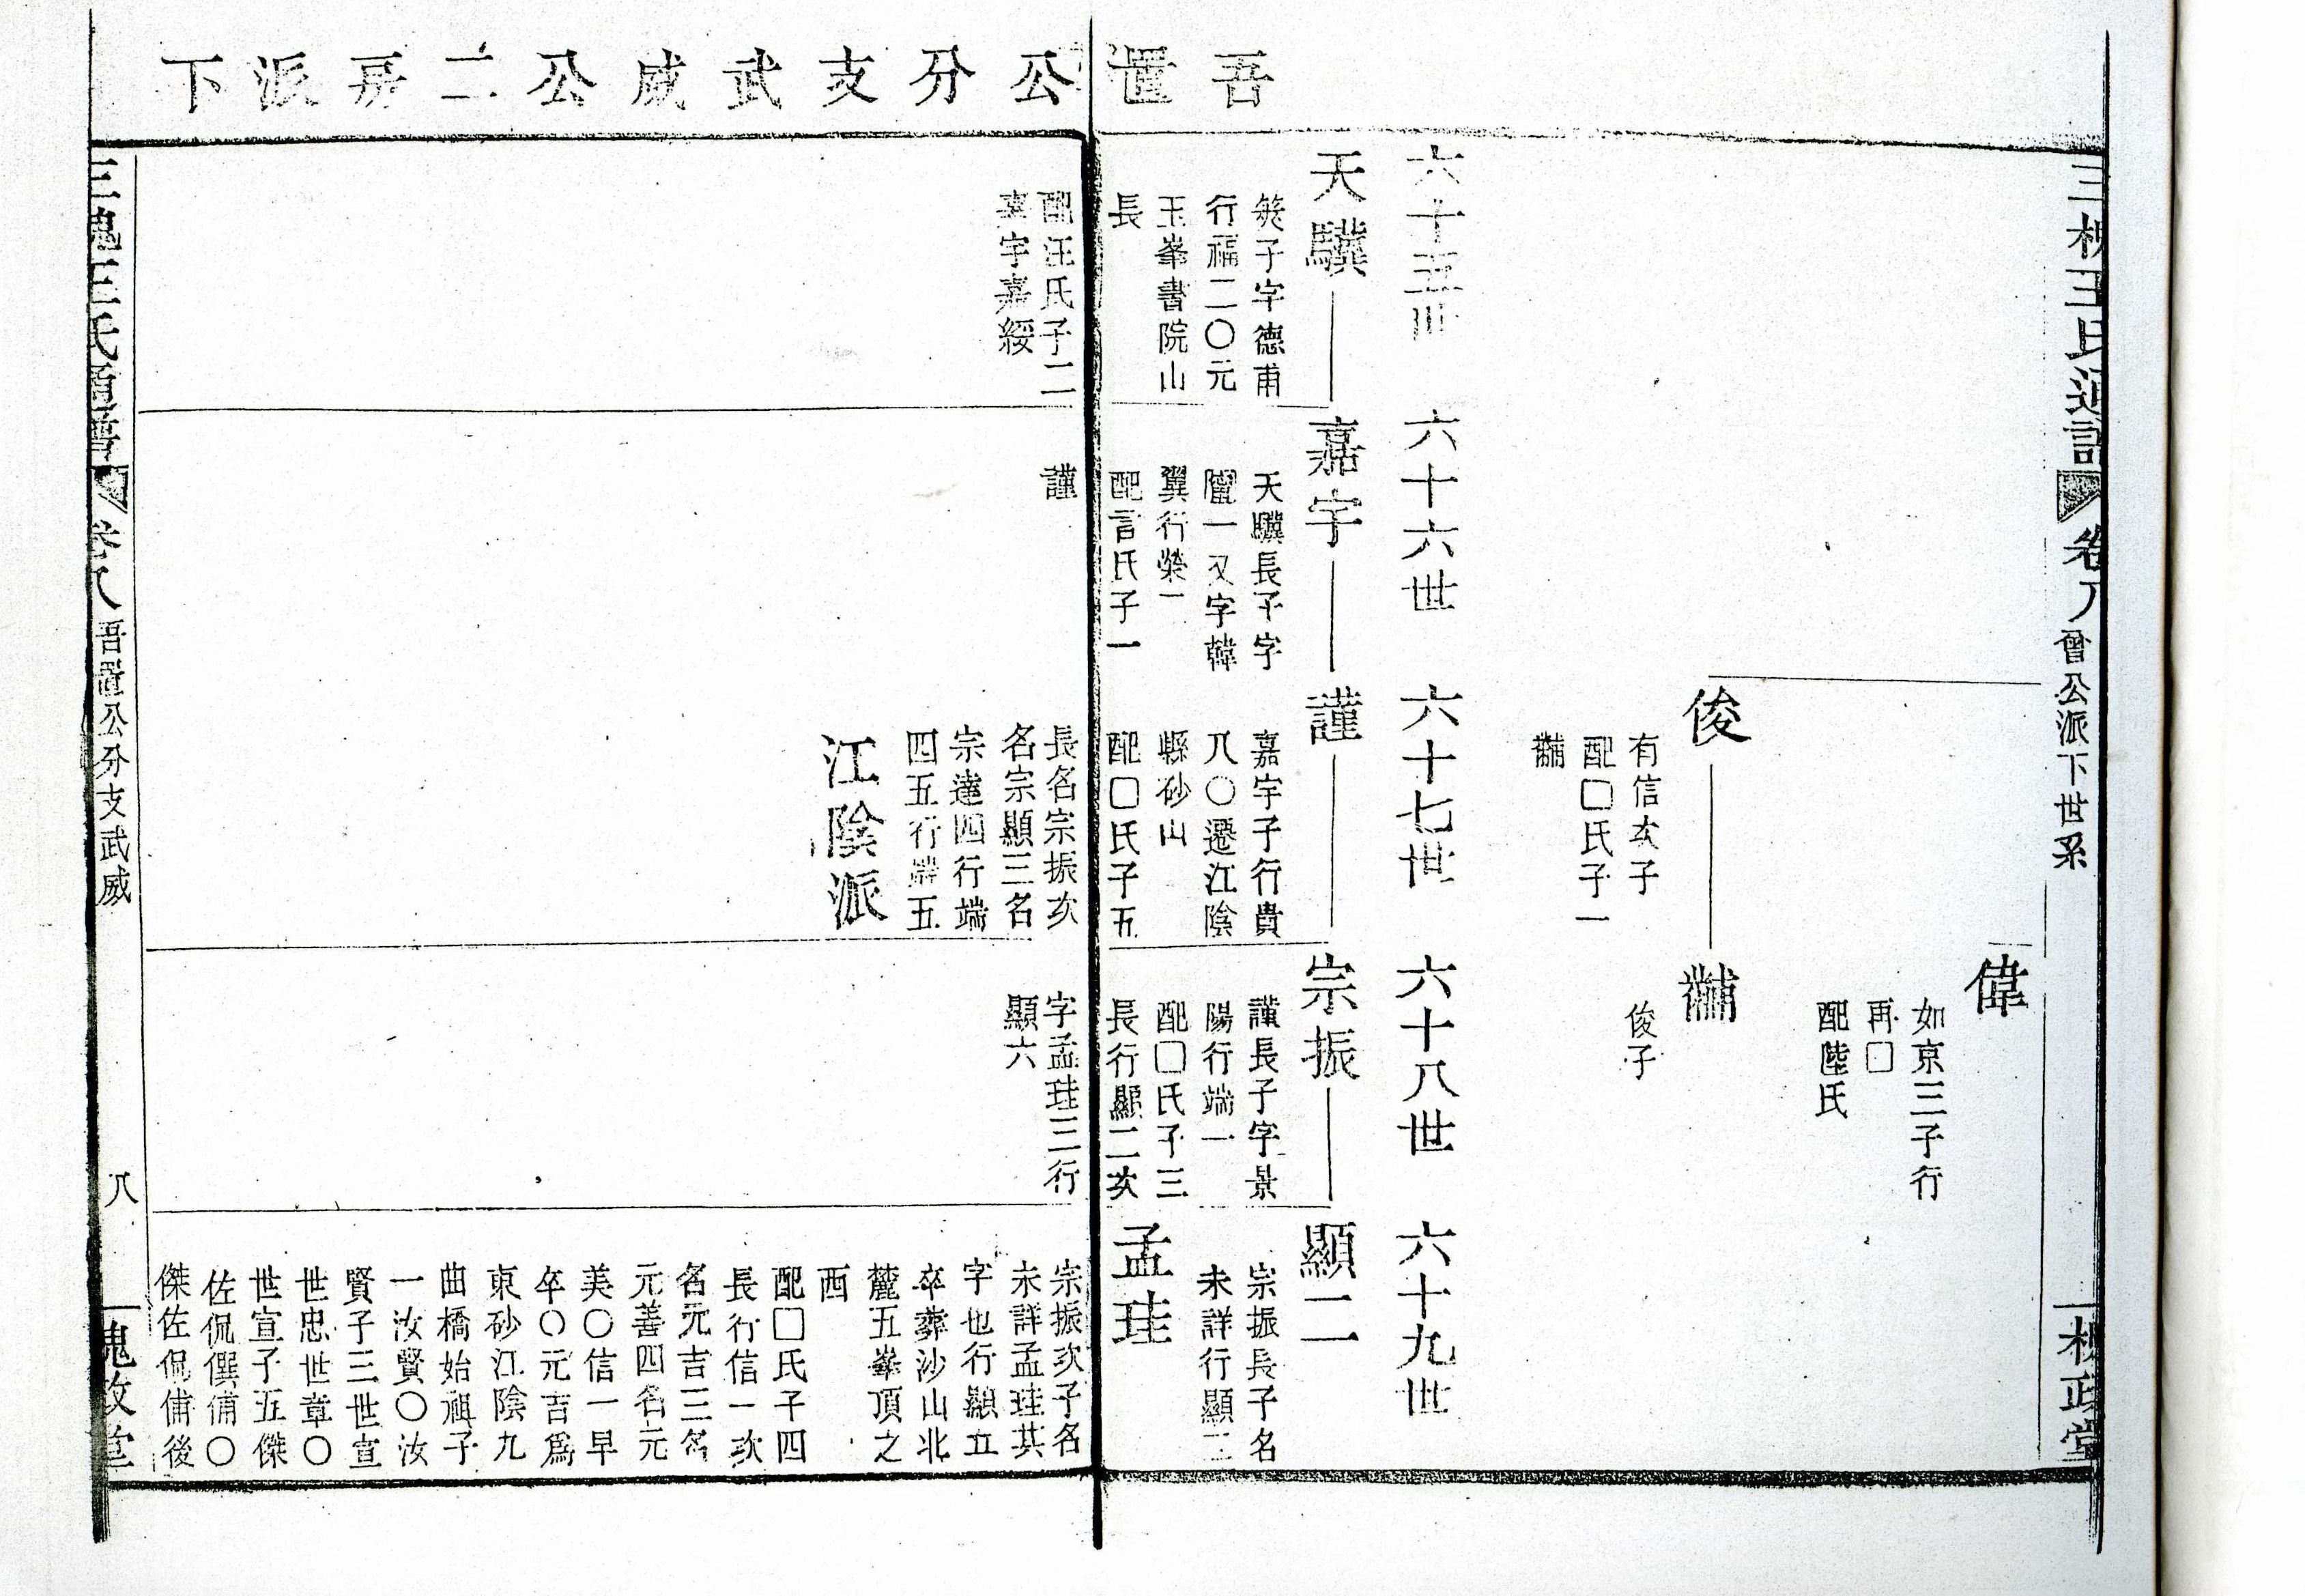 吾置公分支武威公二房派下
三槐王氏通譜
卷八
曾公派下世系
槐政堂
偉
如京三子行
再□
配陸氏
俊
有信次子
配□氏子一
黼
黼
俊子
六十五世
六十六世
六十七世
六十八世
六十九世
天驥
子字德甫
行福二〇元
玉峯書院山
長
配汪氏子二
嘉字嘉綬
嘉宇
天驥長子字
一又字韓
翼行榮一
配言氏子一
謹
謹
嘉宇子行貴
八〇遷江陰
縣砂山
配□氏子五
長名宗振次
名宗顯三名
宗達四行端
四五行端五
江陰派
宗振
謹長子字景
陽行端一
配□氏子三
長行顯二次
字孟珪三行
顯六
顯二
宗振長子名
未詳行顯二
孟珪
宗振次子名
未詳孟珪其
字也行顯五
卒葬沙山北
麓五峯頂之
西
配□氏子四
長行信一次
名元吉三名
元善四名元
美〇信一早
卒〇元吉爲
東砂江陰九
曲橋始祖子
一汝賢〇汝
賢子三世宣
世忠世章〇
世宣子五傑
佐侃僎俌〇
傑佐侃俌後
三槐王氏通譜
卷八
吾置公分支武威
八
槐政堂